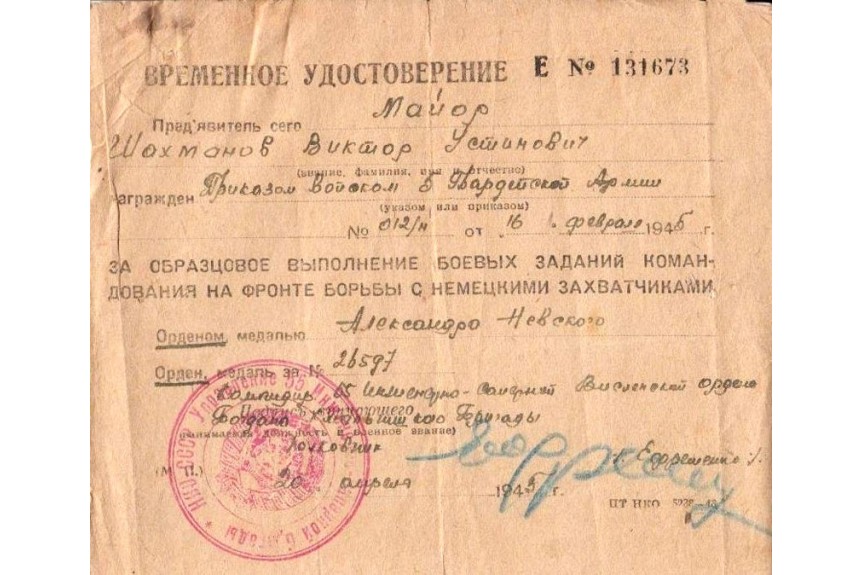 ВРЕМЕННОЕ УДОСТОВЕРЕНИЕ Е № 131673
Пред'явитель сего Майор
Шахманов Виктор Устинович
(звание, фамилия, имя и отчество)
награжден Приказом Войскам 5 Гвардейской Армии
(указом или приказом)
№ 012/н от 16 февраля 1945 г.
ЗА ОБРАЗЦОВОЕ ВЫПОЛНЕНИЕ БОЕВЫХ ЗАДАНИЙ КОМАН-
ДОВАНИЯ НА ФРОНТЕ БОРЬБЫ С НЕМЕЦКИМИ ЗАХВАТЧИКАМИ
Орденом, медалью Александра Невского
Орден, медаль за № 26597
Командир 55 Инженерно-Саперной Висленской ордена
Богдана Хмельницкого Бригады
Подпись вручающего
(занимаемая должность и военное звание)
Полковник Ефременко
(М. П.) 20 апреля 1945 г.
ПТ НКО
НКО СССР Управление 55 Инженерно-Саперной бригады